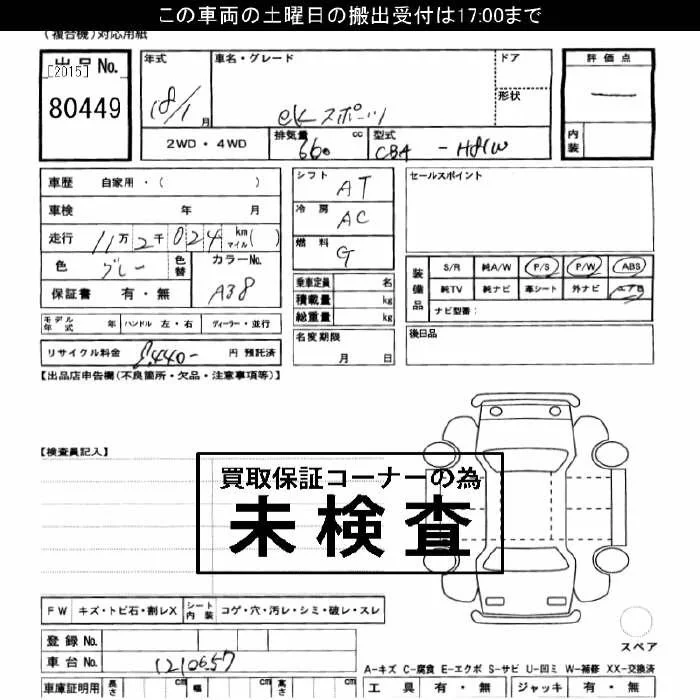 この車両の土曜日の搬出受付は17:00まで
(複合機)対応用紙
出品No.
[2015]
80449
年式
18/1
月
車名・グレード
ekスポーツ
ドア
形状
評価点
内装
2WD・4WD
排気量
660
cc
型式
CBA - H81W
車歴 自家用・( )
車検 年 月
走行 11万2千024 km マイル( )
色 グレー 色替 カラーNo. A38
保証書 有・無
シフト AT
冷房 AC
燃料 G
乗車定員 名
積載量 kg
総重量 kg
セールスポイント
装備品
S/R 純A/W P/S P/W ABS
純TV 純ナビ 革シート 外ナビ エアB
ナビ型番:
モデル年式 年 ハンドル 左・右 ディーラー・並行
名変期限
月 日
後日品
リサイクル料金 8,440- 円 預託済
【出品店申告欄(不良箇所・欠品・注意事項等)】
【検査員記入】
買取保証コーナーの為
未検査
FW キズ・トビ石・割レX シート内装 コゲ・穴・汚レ・シミ・破レ・スレ
登録No.
車台No. 1210657
スペア
A-キズ C-腐食 E-エクボ S-サビ U-凹ミ W-補修 XX-交換済
車庫証明用 長さ cm 幅 cm 高さ cm
工具 有・無 ジャッキ 有・無